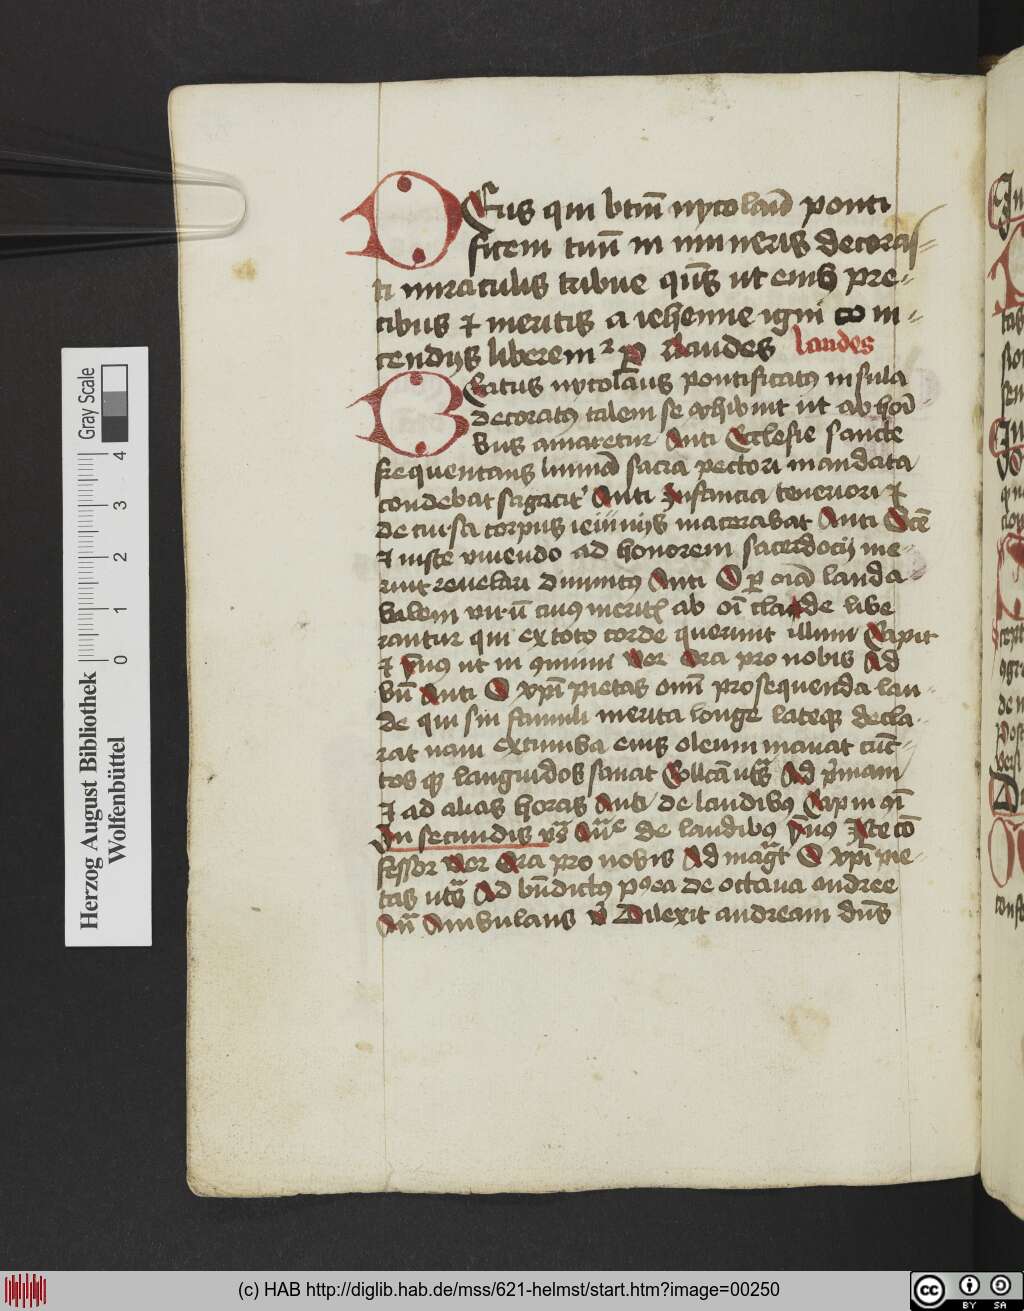 Deus qui btm̄ nycolaū ponti
ficem tuū in mineris decoras-
ti miraculis tribue qs̄ ut eius pre-
cibus et meritis a iehenne igni co in-
cendijs liberemr p Laudes laudes
Beatus nycolaus pontificatꝰ insula
decoratꝰ talem se exhibuit ut ab hoī
bus amaretur Anti Ecclesie sancte
frequentans limina sacra pectori mandata
condebat sagacit' Anti Infancia teneriori et
decursa corpus ieiunijs macerabat Anti
et iuste viuendo ad honorem sacerdocij me-
ruit reuelari diuinitꝰ Anti O p oīa lauda-
bilem virū cuiꝰ meritis ab oī clade libe
rantur qui ex toto corde querunt illum Capit
et ut in Ver Ora pro nobis Ad
bn̄ Anti O xp̄i pietas omī prosequenda lau-
de qui sui famuli merita longe lateqꝫ decla-
rat nam ex tumba eius oleum manat cunc-
tos qꝫ languidos sanat Collcā uts̄ Ad p̄mam
et ad alias horas Anti de laudibꝰ Cap in
In secundis vs̄ de laudibꝰ Iste cō
fessor Ver Ora pro nobis Ad maḡt O xp̄i pie-
tas uts̄ Ad bn̄dictꝰ postea de octaua andree
An̄ Ambulans v̄ Dilexit andream dn̄s
Herzog August Bibliothek
Wolfenbüttel
Gray Scale
0 1 2 3 4
(c) HAB http://diglib.hab.de/mss/621-helmst/start.htm?image=00250
cc BY SA